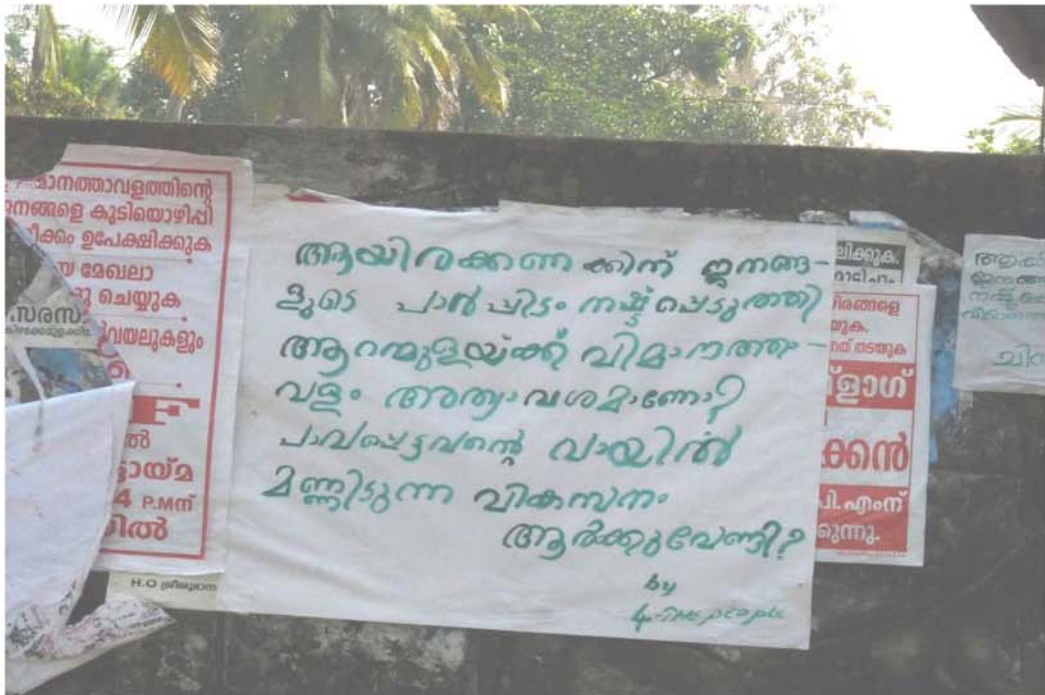 മാനത്താവളത്തിന്റെ
ജനങ്ങളെ കുടിയൊഴിപ്പി
നീക്കം ഉപേക്ഷിക്കുക
മേഖലാ
ചെയ്യുക
വയലുകളും
സരസ്
F
ൽ
ട്ടായ്മ
4 P.Mന്
ിൽ
H.O
ആയിരക്കണക്കിന് ജനങ്ങ-
ളുടെ പാർപ്പിടം നഷ്ട്ടപ്പെടുത്തി
ആറന്മുളയ്ക്ക് വിമാനത്താ-
വളം അത്യാവശമാണോ?
പാവപ്പെട്ടവന്റെ വായിൽ
മണ്ണിടുന്ന വികസനം
ആർക്കുവേണ്ടി?
by
4-the people
ലിക്കുക.
ിരങ്ങളെ
യുക.
നത് തടയുക
ളാഗ്
ക്കൻ
പി.എംന്
കുന്നു.